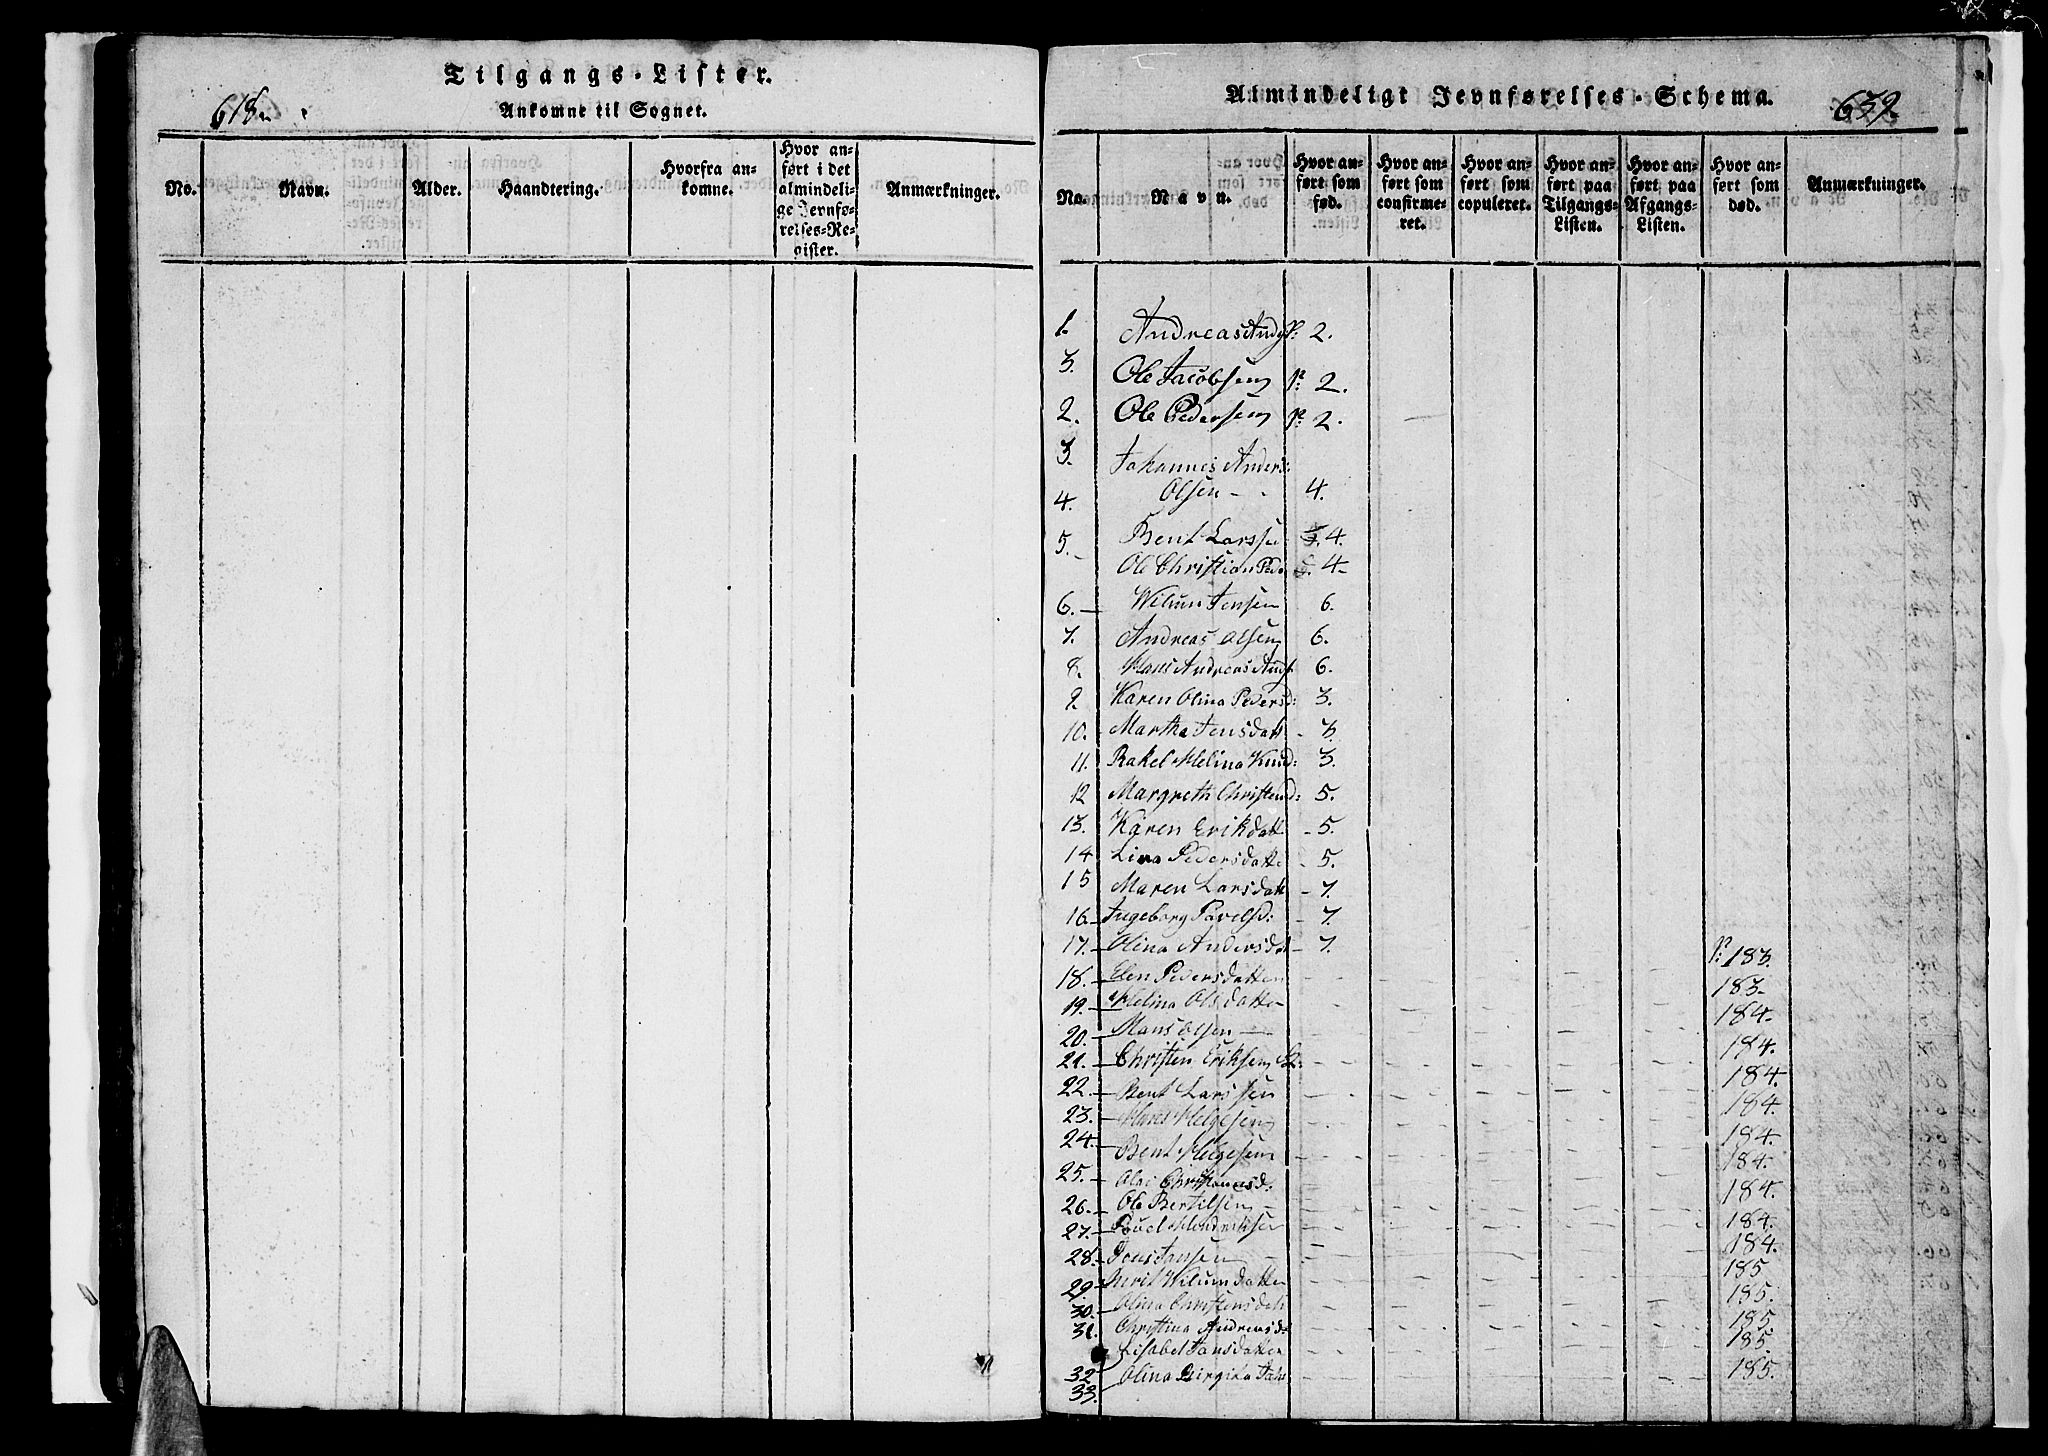 Tilgangs-Lister.
618.
Ankomne til Sognet.
No.
Navn.
Alder.
Haandtering.
Hvorfra an-
komne.
Hvor an-
ført i det
almindeli-
ge Jevnfø-
relses-Re-
gister.
Anmærkninger.
Almindeligt Jevnførelses-Schema.
639.
No.
Navn.
Hvor an-
ført som
fød.
Hvor an-
ført som
confirme-
ret.
Hvor an-
ført som
copuleret.
Hvor an-
ført paa
Tilgangs-
Listen.
Hvor an-
ført paa
Afgangs-
Listen.
Hvor an-
ført som
død.
Anmærkninger.
1. Andreas p: 2.
3. Ole Jacobsen p: 2.
2. Ole Pedersen p: 2.
3. Johannes Anders:
4. Olsen - - 4.
5. Bent Larssen 4.
Ole Christian Ped: 4-
6. — Wilum Jensen 6.
7. Andreas Olsen 6.
8. Hans Andreas And: 6.
9 Karen Olina Pedersd: 3.
10. Martha Jensdatt - 3.
11. Rakel Helina Knud: 3.
12 Margreth Christensd: 5.
13. Karen Erikdatt - 5.
14 Lina Pedersdatte - 5.
15 Maren Larsdatt - 7.
16. - Ingeborg Povelsd: - 7.
17. - Olina Andersdat - 7.
p: 183.
18. - Elen Pedersdatten
183-
19. - Helina Olsdatten
184.
20. - Hans Olsen —
184.
21. - Christen Eriksen
184.
22. - Bent Larssen
184.
23. - Hans Helgesen
184.
24. - Bent Helgesen
184.
25. - Christiansd:
184.
26. - Ole Bertilsen -
184.
27. - Poul Hendrichsen
184.
28. - Jansen
185
29. - Berit Wilumdatten
185.
30. - Olina Christensdatt
185.
31. Christina Andreasd:
185.
Lisabet Jansdatten
32 185.
33. Olina Birgitta Jahn